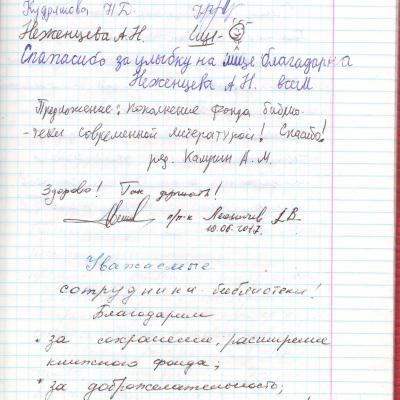 Кудряшова Н.Д.
Неженцева А.Н.
Спапасибо за улыбку на лице благодарна
Неженцева А.Н. всем
Предложение: Пополнение фонда библио-
-теки современной литературой! Спасибо!
ряд. Калугин А.М.
Здорово! Так держать!
10.06.2017.
Уважаемые
сотрудники библиотеки!
Благодарим
* за сохранение, расширение
книжного фонда;
* за доброжелательность;